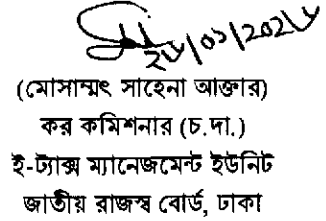 ২৮/০১/২০২৫
(মোসাম্মৎ সাহেনা আক্তার)
কর কমিশনার (চ.দা.)
ই-ট্যাক্স ম্যানেজমেন্ট ইউনিট
জাতীয় রাজস্ব বোর্ড, ঢাকা